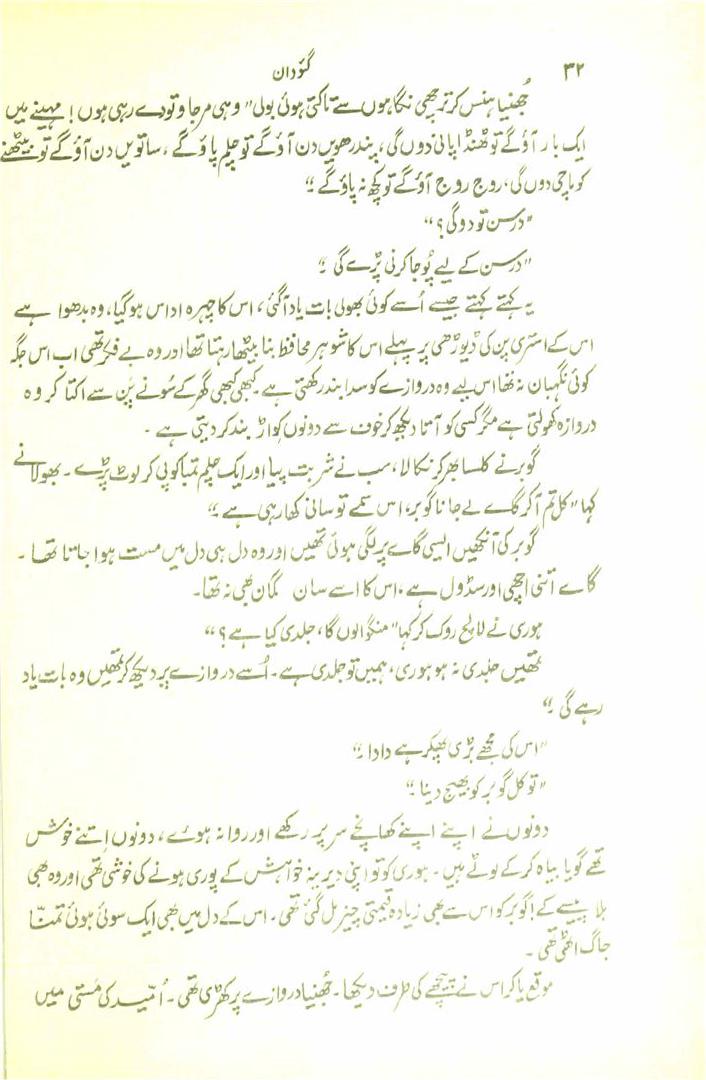 ۳۲
گئودان
جُھنیا ہنس کر ترچھی نگاہوں سے تاکتی ہوئی بولی "وہی مرجاد تو دے رہی ہوں! مہینے میں
ایک بار آؤگے تو ٹھنڈا پانی دوں گی، پندرھویں دن آؤگے تو چلم پاؤگے، ساتویں دن آؤگے تو بیٹھنے
کو ماچی دوں گی، روج روج آؤگے تو کچھ نہ پاؤگے۔"
"درسن تو دوگی؟"
"درسن کے لیے پُوجا کرنی پڑے گی۔"
یہ کہتے کہتے جیسے اُسے کوئی بھولی بات یاد آگئی، اس کا چہرہ اداس ہوگیا، وہ بدھوا ہے
اس کے استری پن کی ڈیوڑھی پر پہلے اس کا شوہر محافظ بنا بیٹھا رہتا تھا اور وہ بے فکر تھی اب اس جگہ
کوئی نگہبان نہ تھا اس لیے وہ دروازے کو سدا بند رکھتی ہے۔ کبھی کبھی گھر کے سُونے پن سے اکتا کر وہ
دروازہ کھولتی ہے مگر کسی کو آتا دیکھ کر خوف سے دونوں کواڑ بند کر دیتی ہے۔
گوبر نے کلسا بھر کر نکالا، سب نے شربت پیا اور ایک چلم تمباکو پی کر لوٹ پڑے۔ بھولا نے
کہا "کل تم آکر گاے لے جانا گوبر، اس سمے تو سانی کھا رہی ہے۔"
گوبر کی آنکھیں اسی گاے پر لگی ہوئی تھیں اور وہ دل ہی دل میں مست ہوا جاتا تھا۔
گاے اتنی اچھی اور سڈول ہے، اس کا اسے سان گمان بھی نہ تھا۔
ہوری نے لالچ روک کر کہا "منگوا لوں گا، جلدی کیا ہے؟"
تمھیں جلدی نہ ہو ہوری، ہمیں تو جلدی ہے۔ اُسے دروازے پر دیکھ کر تمھیں وہ بات یاد
رہے گی۔"
"اس کی مجھے بڑی پھکر ہے دادا۔"
"تو کل گوبر کو بھیج دینا۔"
دونوں نے اپنے اپنے کھانچے سر پر رکھے اور روانہ ہوے، دونوں اِتنے خوش
تھے گویا بیاہ کرکے لوٹے ہیں۔ ہوری کو تو اپنی دیرینہ خواہش کے پوری ہونے کی خوشی تھی اور وہ بھی
بلا پیسے کے! گوبر کو اس سے بھی زیادہ قیمتی چیز مل گئی تھی۔ اس کے دل میں بھی ایک سوئی ہوئی تمنّا
جاگ اٹھی تھی۔
موقع پاکر اس نے پیچھے کی طرف دیکھا۔ جُھنیا دروازے پر کھڑی تھی۔ اُمّید کی مستی میں